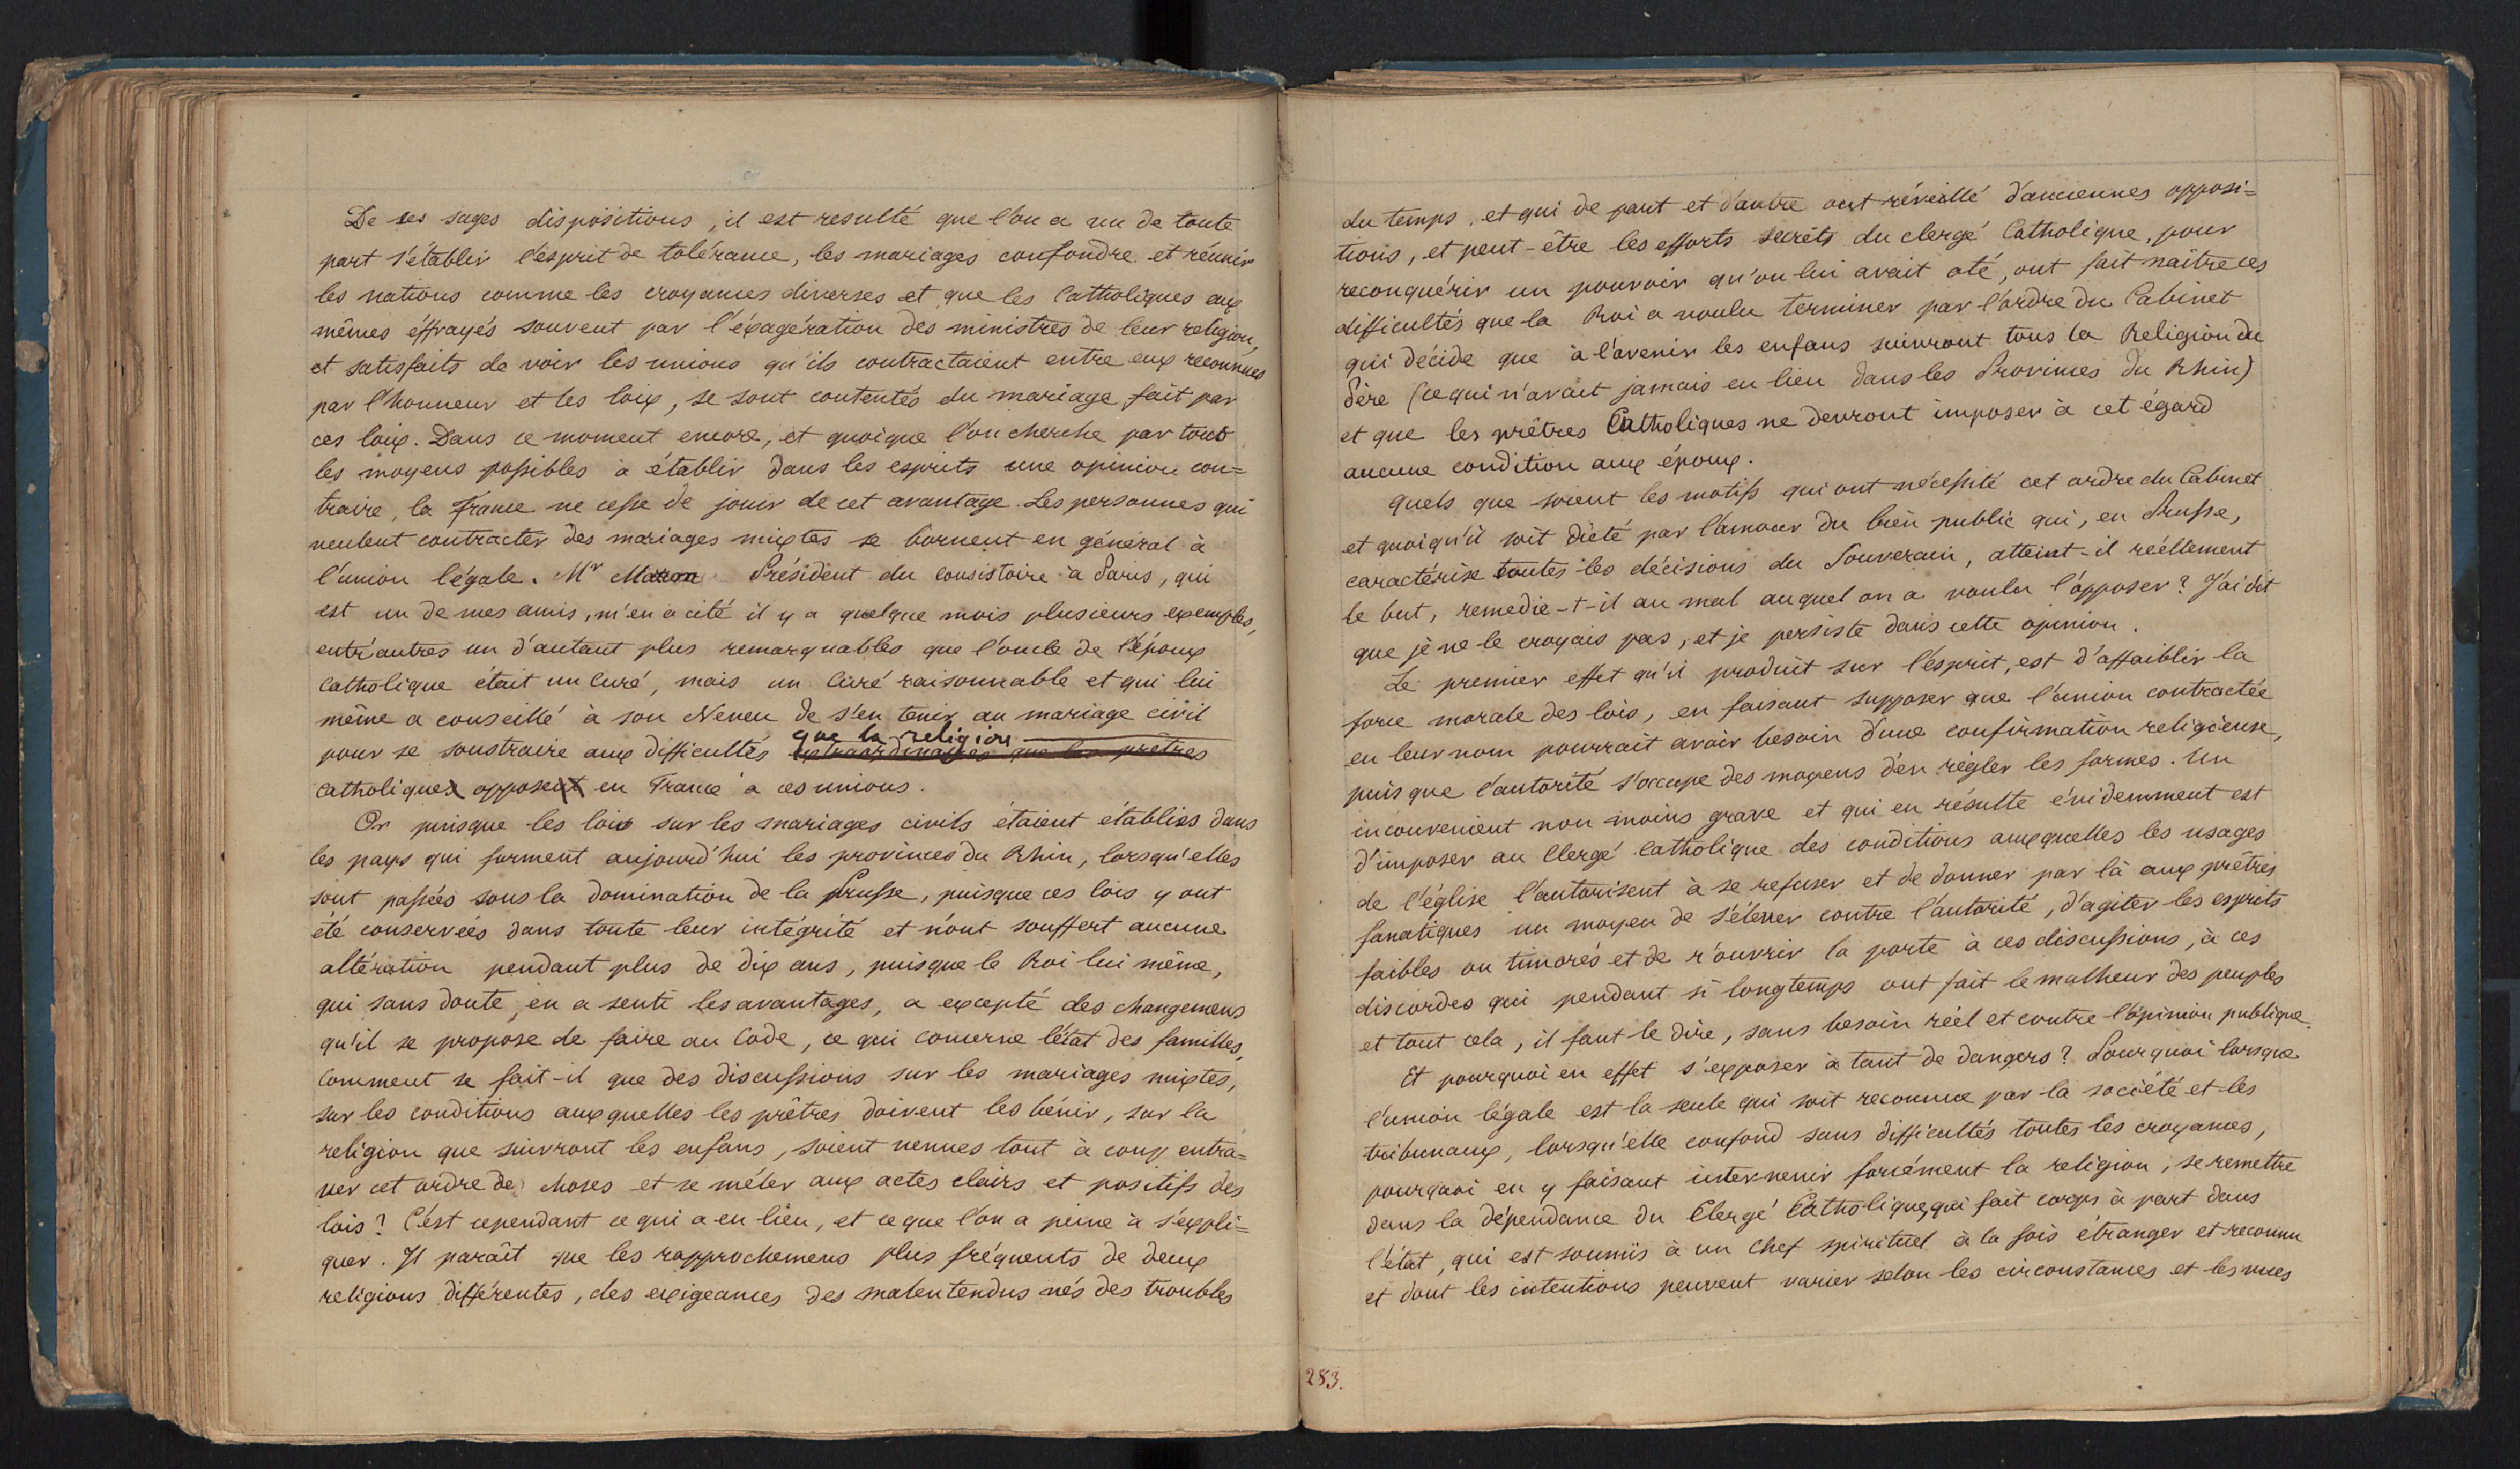 De ces sages dispositions, il est resulté que l'on a vu de toute
part s'établir l'esprit de tolérance, les mariages confondre et réunir
les nations comme les croyances diverses et que les Catholiques eux
mêmes éffrayés souvent par l'éxagération des ministres de leur religion,
et satisfaits de voir les unions qu'ils contractaient entre eux reconnues
par l'honneur et les loix, se sont contentés du mariage fait par
ces loix. Dans ce moment encore, et quoique l'on cherche par tous
les moyens possibles à établir dans les esprits une opinion con=
traire, la France ne cesse de jouir de cet avantage. Les personnes qui
veulent contracter des mariages mixtes se bornent en général à
l'union légale. Mr Maron Président du Consistoire à Paris, qui
est un de mes amis, m'en a cité il y a quelque mois plusieurs exemples,
entr'autres un d'autant plus remarquables que l'oncle de l'époux
Catholique était un Curé, mais un Curé raisonnable et qui lui
même a conseillé à son Neveu de s'en tenir au mariage civil
que la religion
pour se soustraire aux difficultés extraordinaires que les prêtres
Catholiques opposent en France à ces unions.
Or puisque les lois sur les mariages civils étaient établies dans
les pays qui forment aujourd'hui les provinces du Rhin, lorsqu'elles
sont passées sous la domination de la Prusse, puisque ces lois y ont
été conservées dans toute leur intégrité et n'ont souffert aucune
altération pendant plus de dix ans, puisque le Roi lui même,
qui sans doute, en a senti les avantages, a excepté des changemens
qu'il se propose de faire au Code, ce qui concerne l'état des familles,
Comment se fait-il que des discussions sur les mariages mixtes,
sur les conditions auxquelles les prêtres doivent les bénir, sur la
religion que suivront les enfans, soient venues tout à coup entra=
ver cet ordre de choses et se mêler aux actes clairs et positifs des
lois? C'est cependant ce qui a eu lieu, et ce que l'on a peine à s'expli=
quer. Il paraît que les rapprochemens plus fréquents de deux
religions différentes, des exigeances des malentendus nés des troubles
du temps, et qui de part et d'autre ont réveillé d'anciennes opposi=
tions, et peut-être les efforts secrets du clergé Catholique, pour
reconquérir un pouvoir qu'on lui avait oté, ont fait naître ces
difficultés que le Roi a voulu terminer par l'ordre du Cabinet
qui décide que à l'avenir les enfans suivront tous la Religion du
Père (ce qui n'avait jamais eu lieu dans les Provinces du Rhin)
et que les prêtres Catholiques ne devront imposer à cet égard
aucune condition aux époux.
Quels que soient les motifs qui ont nécessité cet ordre du Cabinet
et quoiqu'il soit dicté par l'amour du bien public qui, en Prusse,
caractérise toutes les décisions du Souverain, atteint-il reéllement
le but, remedie-t-il au mal auquel on a voulu l'opposer? J'ai dit
que je ne le croyais pas, et je persiste dans cette opinion.
Le premier effet qu'il produit sur l'esprit, est d'affaiblir la
force morale des lois, en faisant supposer que l'union contractée
en leur nom pourrait avoir besoin d'une confirmation religieuse,
puis que l'autorité s'occupe des moyens d'en régler les formes. Un
inconvenient non moins grave et qui en résulte évidemment est
d'imposer au Clergé Catholique des conditions auxquelles les usages
de l'église l'autorisent à se refuser et de donner par là aux prêtres
fanatiques un moyen de s'élever contre l'autorité, d'agiter les esprits
faibles ou timorés et de r'ouvrir la porte à ces discussions, à ces
discordes qui pendant si longtemps ont fait le malheur des peuples
et tout cela, il faut le dire, sans besoin réel et contre l'opinion publique.
Et pourquoi en effet s'exposer à tant de dangers? Pourquoi lorsque
l'union légale est la seule qui soit reconnue par la société et les
tribunaux, lorsqu'elle confond sans difficultés toutes les croyances,
pourquoi en y faisant intervenir forcément la religion, se remettre
dans la dépendance du Clergé Catholique, qui fait corps à part dans
l'état, qui est soumis à un Chef spirituel à la fois étranger et reconnu
et dont les intentions peuvent varier selon les circonstances et les vues
283.